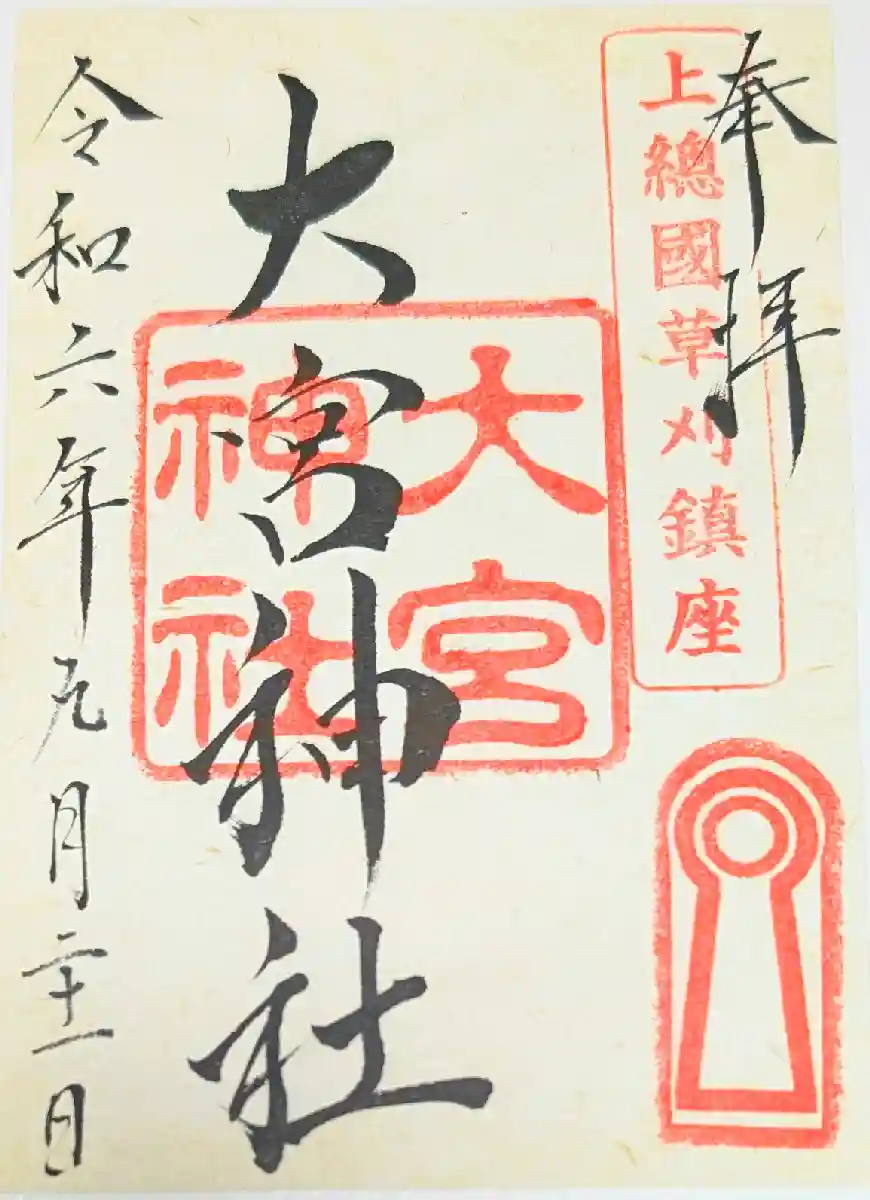 奉拝
上總國草刈鎮座
大宮神社
大宮神社
令和六年九月二十一日